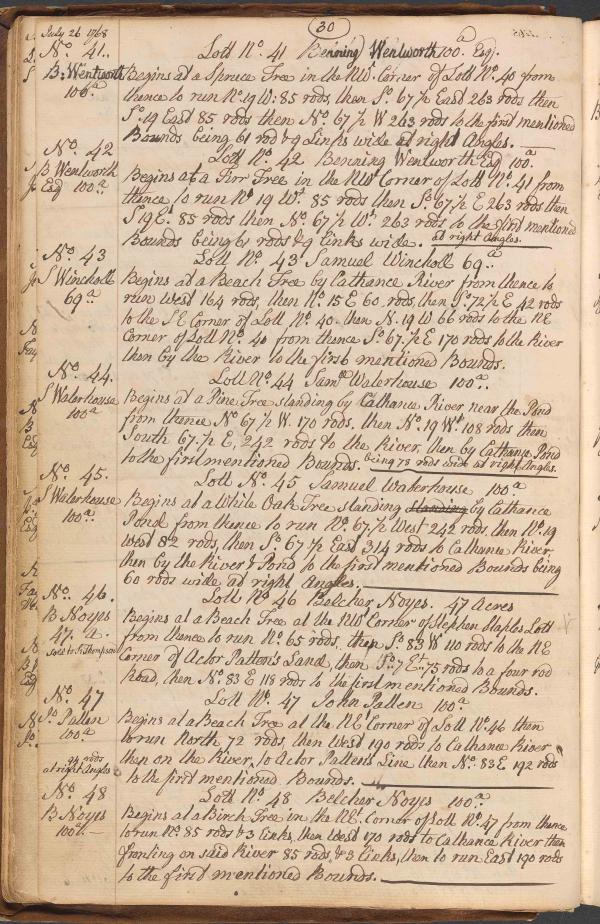 30
July 26 1768
No. 41. Lott No. 41 Benning Wentworth 100.a Esq.
B: Wentworth 100.a
Begins at a Spruce Tree in the NW. Corner of Lott No. 40 from
thence to run No. 19 W: 85 rods, then So. 67 1/2 East 263 rods then
So. 19 East 85 rods then No. 67 1/2 W 263 rods to the first mentioned
Bounds being 61 rod & 9 Links wide at right Angles.
No. 42 Lott No. 42 Benning Wentworth Esq 100.a
B Wentworth Esq 100.a
Begins at a Firr Tree in the NW Corner of Lott No. 41 from
thence to run No. 19 Wt. 85 rods then So. 67 1/2 E 263 rods then
S 19 Et. 85 rods then No. 67 1/2 Wt. 263 rods to the first mentioned
Bounds being 61 rods & 9 links wide. at right Angles.
No. 43 Lott No. 43 Samuel Wincholl 69.a
S Wincholl 69.a
Begins at a Beach Tree by Cathance River from thence to
run West 164 rods, then No. 15 E 60 rods, then So. 72 1/2 E 42 rods
to the SE Corner of Lott No. 40. then N. 19 W 66 rods to the NE
Corner of Lott No. 40 from thence So. 67 1/2 E 170 rods to the River
then by the River to the first mentioned Bounds.
No. 44. Lott No. 44 Saml. Waterhouse 100.a
S Waterhouse 100.a
Begins at a Pine Tree standing by Cathance River near the Pond
from thence No. 67 1/2 W. 170 rods, then No. 19 Wt. 108 rods then
South 67 1/2 E, 242 rods to the River, then by Cathance Pond
to the first mentioned Bounds. being 78 rods wide at right Angles.
No. 45. Lott No. 45 Samuel Waterhouse 100.a
S Waterhouse 100.a
Begins at a White Oak Tree standing standing by Cathance
Pond from thence to run No. 67 1/2 West 242 rods, then No. 19
West 82 rods, then So. 67 1/2 East 314 rods to Cathance River,
then by the River & Pond to the first mentioned Bounds being
60 rods wide at right Angles.
No. 46. Lott No. 46 Belcher Noyes. 47 Acres
B Noyes 47. a.
Sold to Js. Thompson
Begins at a Beach Tree at the NW Corner of Stephen Staples Lott
from thence to run No. 65 rods, then So. 83 W 110 rods to the NE
Corner of Actor Patton's Land, then So. 7 E. 75 rods to a four rod
Road, then No. 83 E 118 rods to the first mentioned Bounds.
No. 47 Lott No. 47 John Patten 100.a
Jo. Patten 100.a
Begins at a Beach Tree at the NE Corner of Lott No. 46 then
to run North 72 rods, then West 190 rods to Cathance River
then on the River, to Actor Patten's Line then No. 83 E 192 rods
to the first mentioned Bounds.
rods
at right Angles
No. 48 Lott No. 48 Belcher Noyes 100.a
B Noyes 100a.
Begins at a Birch Tree in the NE. Corner of Lott No. 47 from thence
to run No. 85 rods & 3 links, then West 170 rods to Cathance River then
fronting on said River 85 rods & 3 links, then to run East 190 rods
to the first mentioned Bounds.